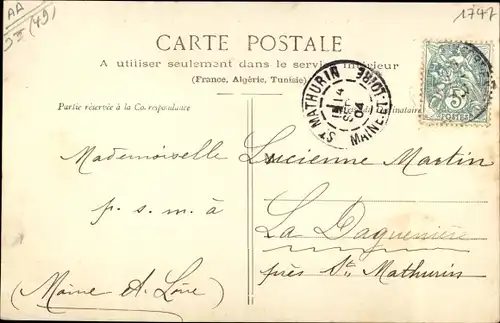 AA
(49)
1747
CARTE POSTALE
A utiliser seulement dans le service intérieur
(France, Algérie, Tunisie)
ST MATHURIN
MAINE-ET-LOIRE
4
SEPT
04
5
POSTES
Partie réservée à la Correspondance
Mademoiselle Lucienne Martin
p. s. m. à
La Daguenière
près St. Mathurin
(Maine & Loire)